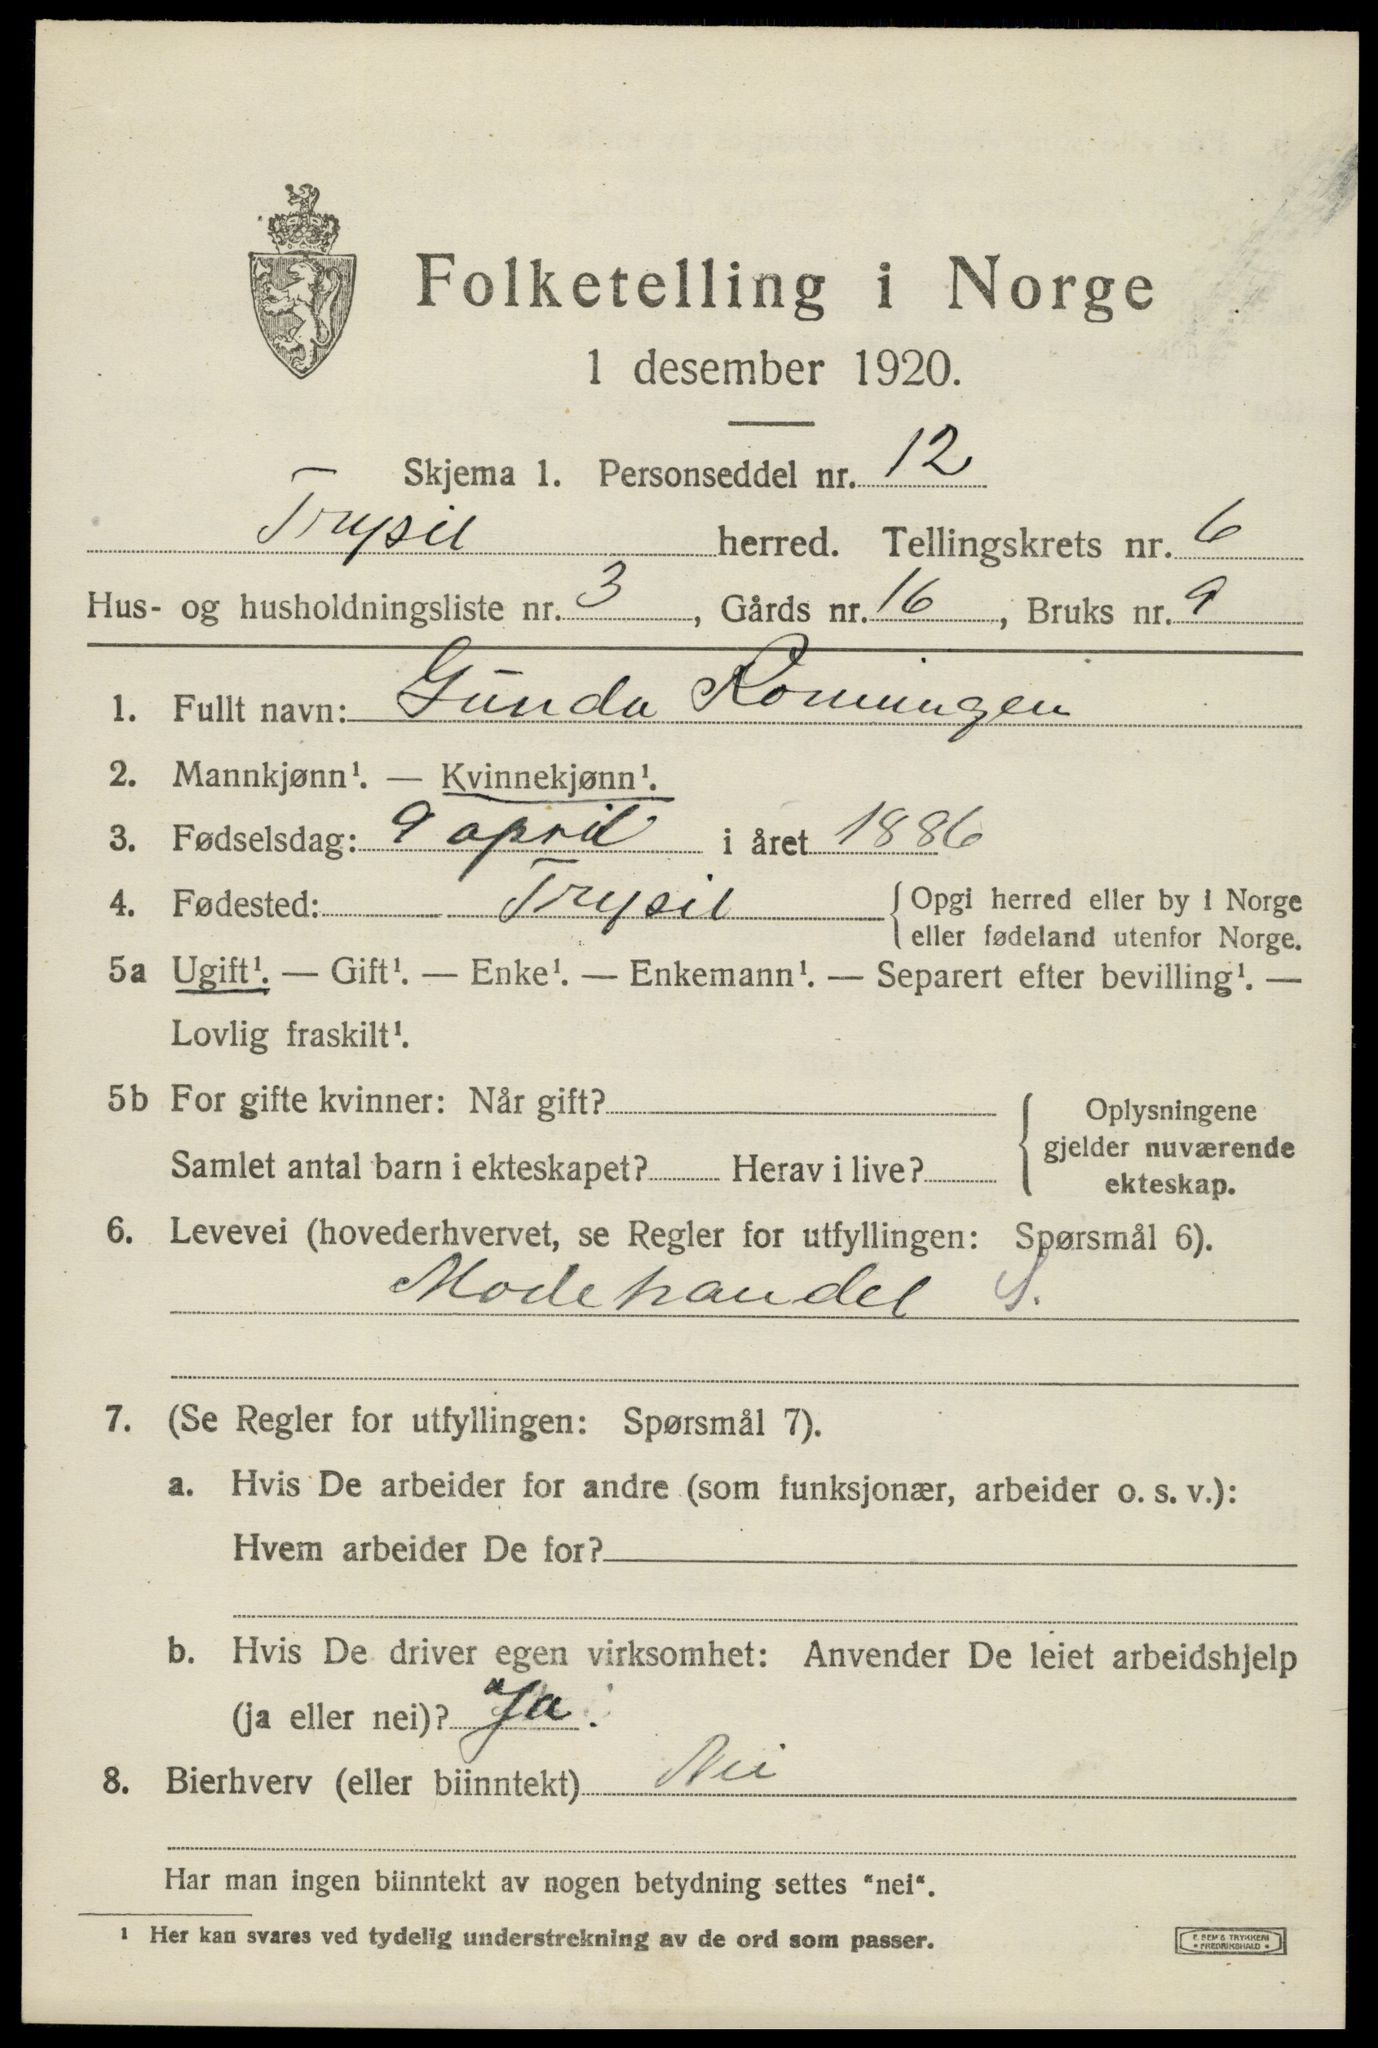 Folketelling i Norge
1 desember 1920.
Skjema 1. Personseddel nr. 12
Trysil herred. Tellingskrets nr. 6
Hus- og husholdningsliste nr. 3, Gårds nr. 16, Bruks nr. 9
1. Fullt navn: Gunda Romningen
2. Mannkjønn¹. — Kvinnekjønn¹.
3. Fødselsdag: 9 april i året 1886
4. Fødested: Trysil {Opgi herred eller by i Norge
eller fødeland utenfor Norge.
5a Ugift¹. — Gift¹. — Enke¹. — Enkemann¹. — Separert efter bevilling¹. —
Lovlig fraskilt¹.
5b For gifte kvinner: Når gift?
Samlet antal barn i ekteskapet? Herav i live?
Oplysningene
gjelder nuværende
ekteskap.
6. Levevei (hovederhvervet, se Regler for utfyllingen: Spørsmål 6).
Modehandel S.
7. (Se Regler for utfyllingen: Spørsmål 7).
a. Hvis De arbeider for andre (som funksjonær, arbeider o. s. v.):
Hvem arbeider De for?
b. Hvis De driver egen virksomhet: Anvender De leiet arbeidshjelp
(ja eller nei)? "Ja.
8. Bierhverv (eller biinntekt) Nei
Har man ingen biinntekt av nogen betydning settes "nei".
¹ Her kan svares ved tydelig understrekning av de ord som passer.
E. SEM'S TRYKKERI
• FREDRIKSHALD •